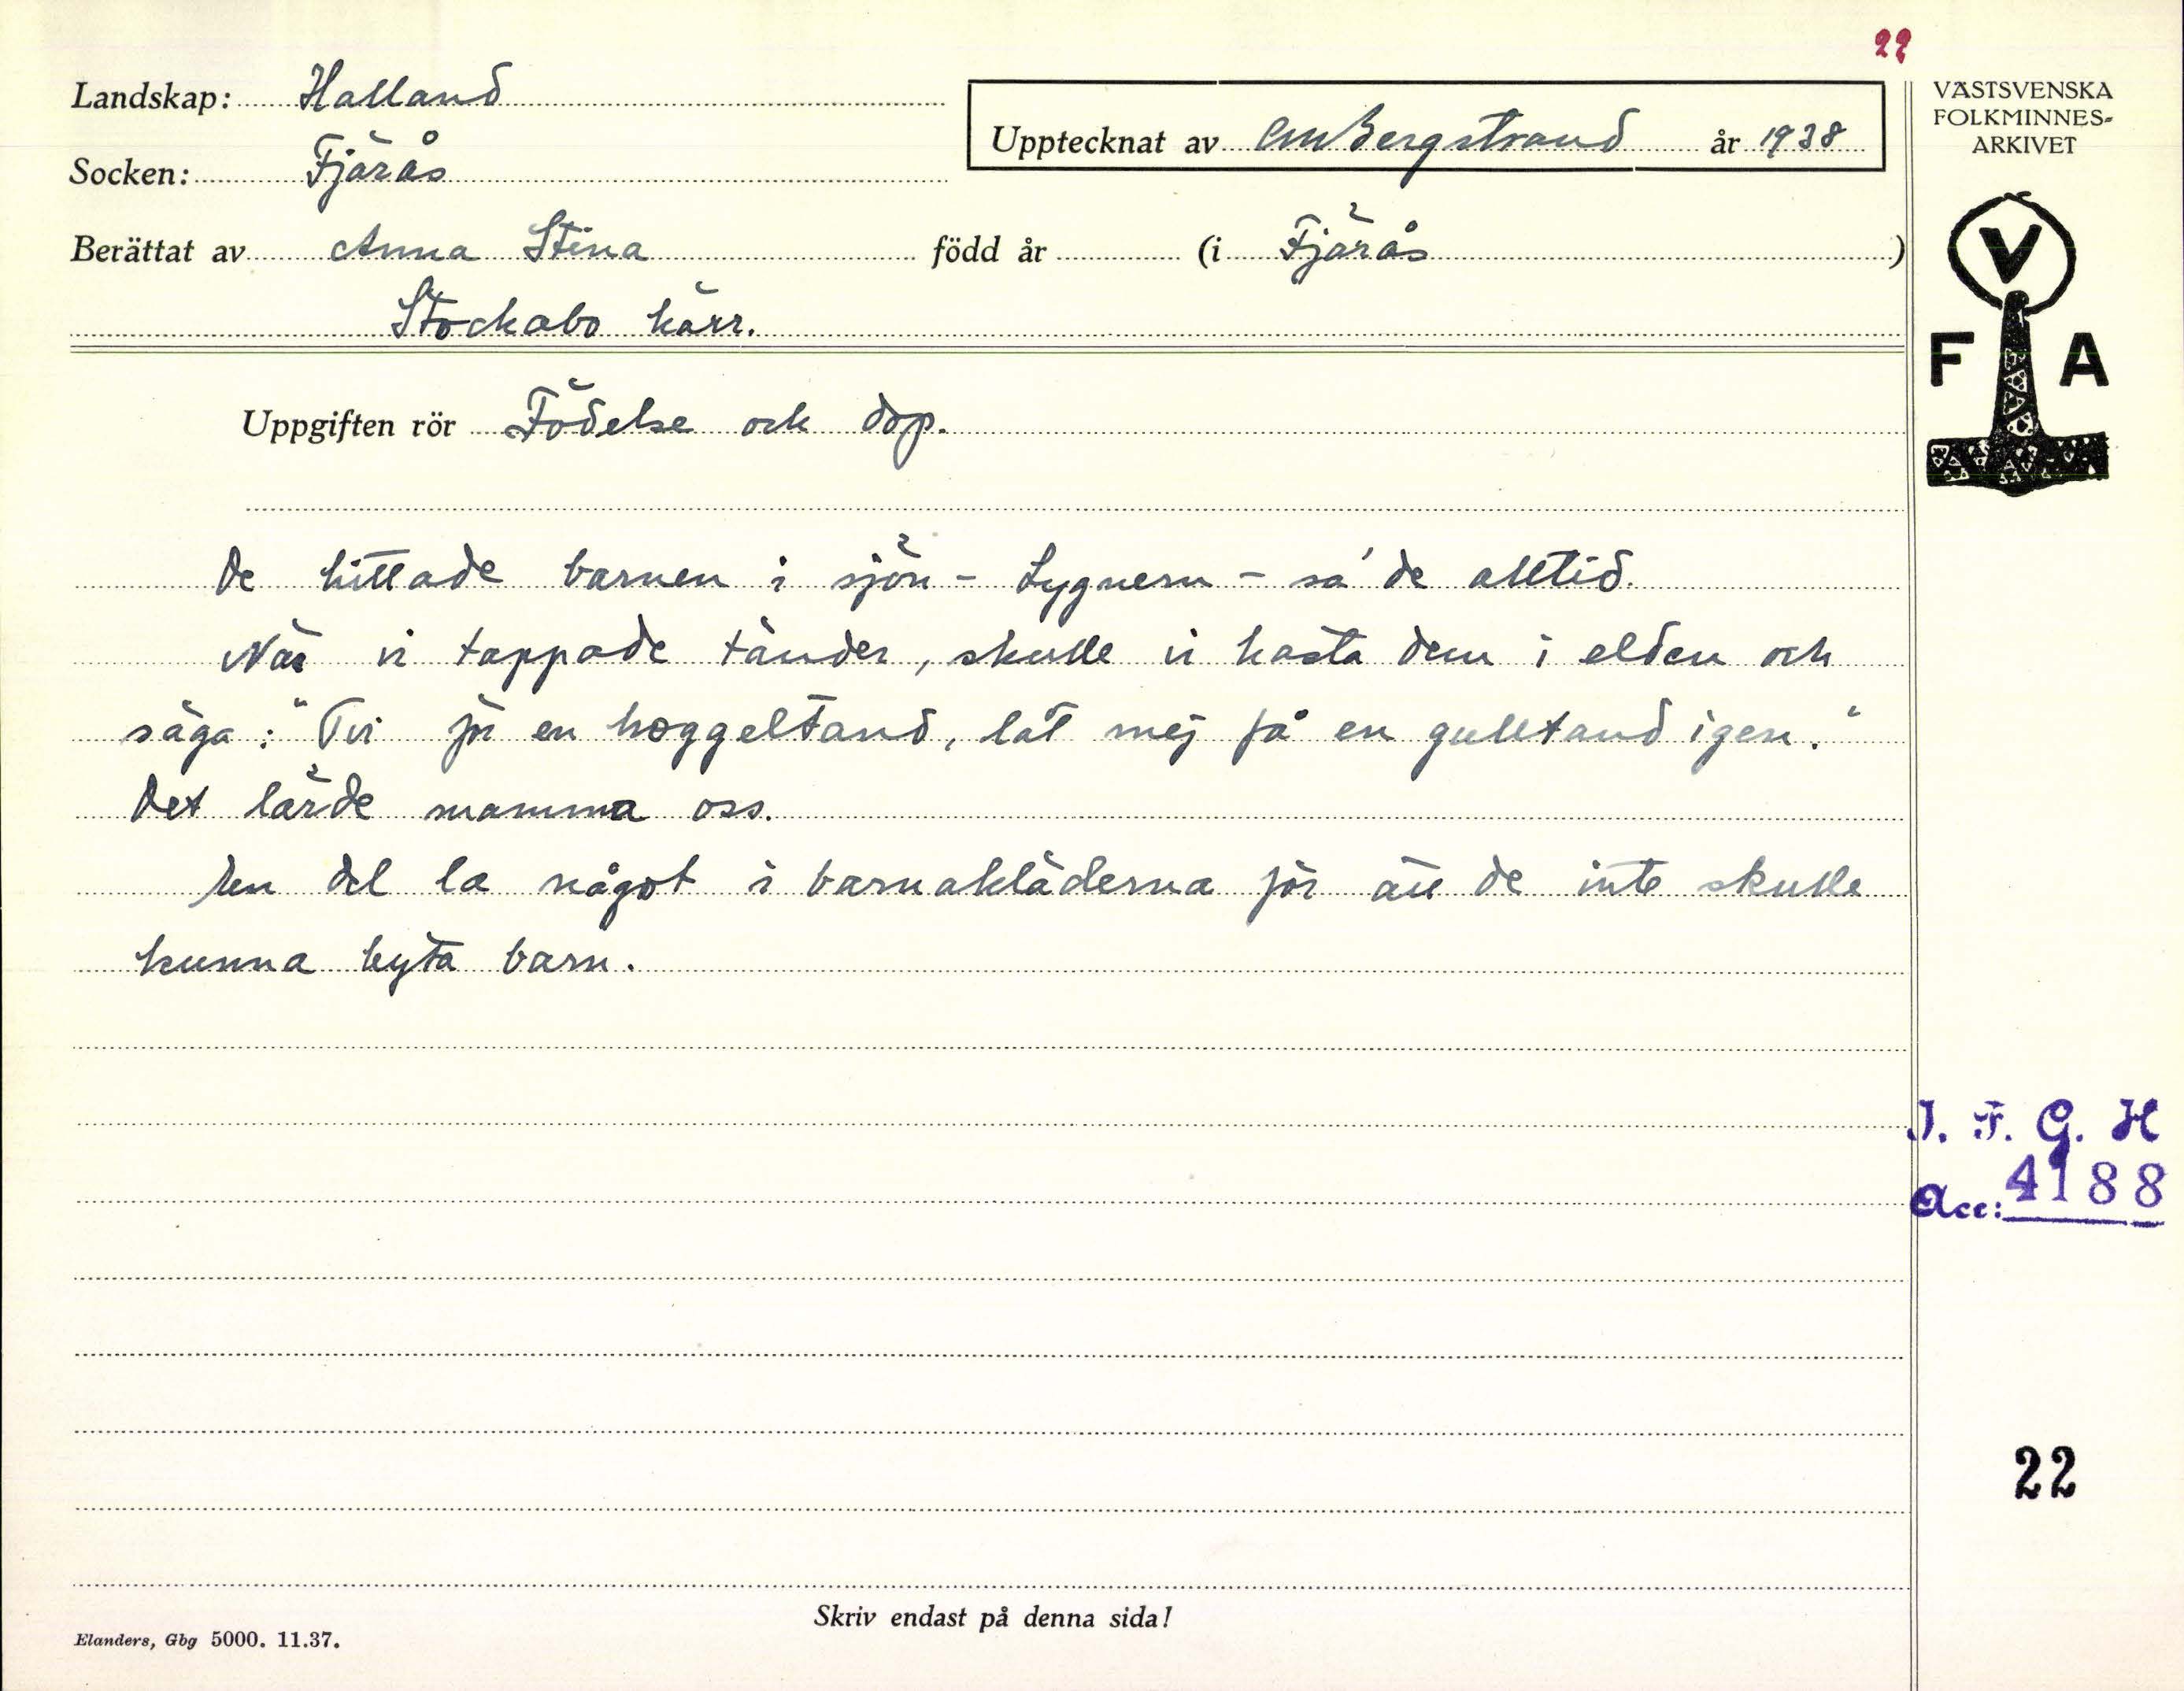 22
Landskap: Halland
Socken: Fjärås
Upptecknat av CM Bergstrand år 1938
Berättat av Anna Stina född år (i Fjärås )
Stockabo kärr.
Uppgiften rör Födelse och dop.
De hittade barnen i sjön - Lygnern - sa' de alltid.
När vi tappade tänder, skulle vi kasta dem i elden och
säga: "Tvi för en hoggeltand, låt mej få en gulltand igen."
Det lärde mamma oss.
En del la något i barnakläderna för att de inte skulle
kunna byta barn.
VÄSTSVENSKA
FOLKMINNES-
ARKIVET
V
F A
I. F. G. H
Acc: 4188
22
Skriv endast på denna sida!
Elanders, Gbg 5000. 11.37.